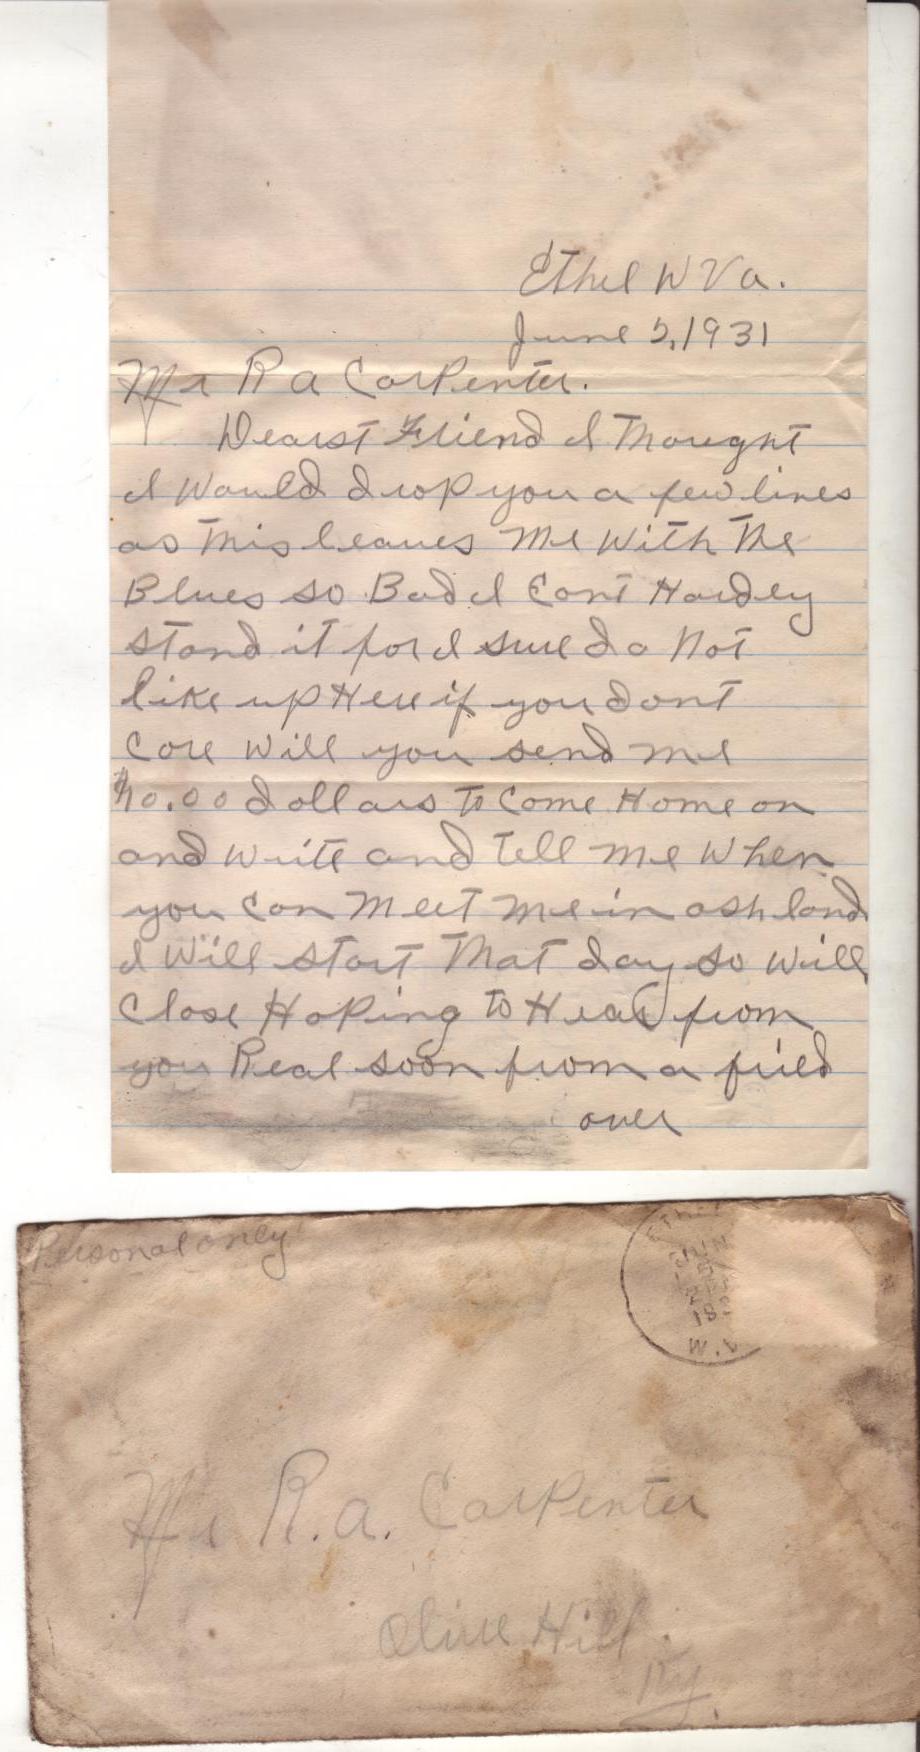 Ethel W Va.
June 2, 1931
Mr R a Carpenter.
Dearst Friend I Thought
I Would drop you a few lines
as This leaves Me With The
Blues so Bad I Cont Hardey
stand it for I sure do Not
like up Here if you dont
Care Will you send me
$10.00 dollars To Come Home on
and write and Tell Me When
you Can Meet Me in ashland
I Will start That day so Will
Close Hoping To Hear from
you Real soon from a fried
over
Personal only
W.V
Mr R.a. Carpenter
Olive Hill.
Ky.